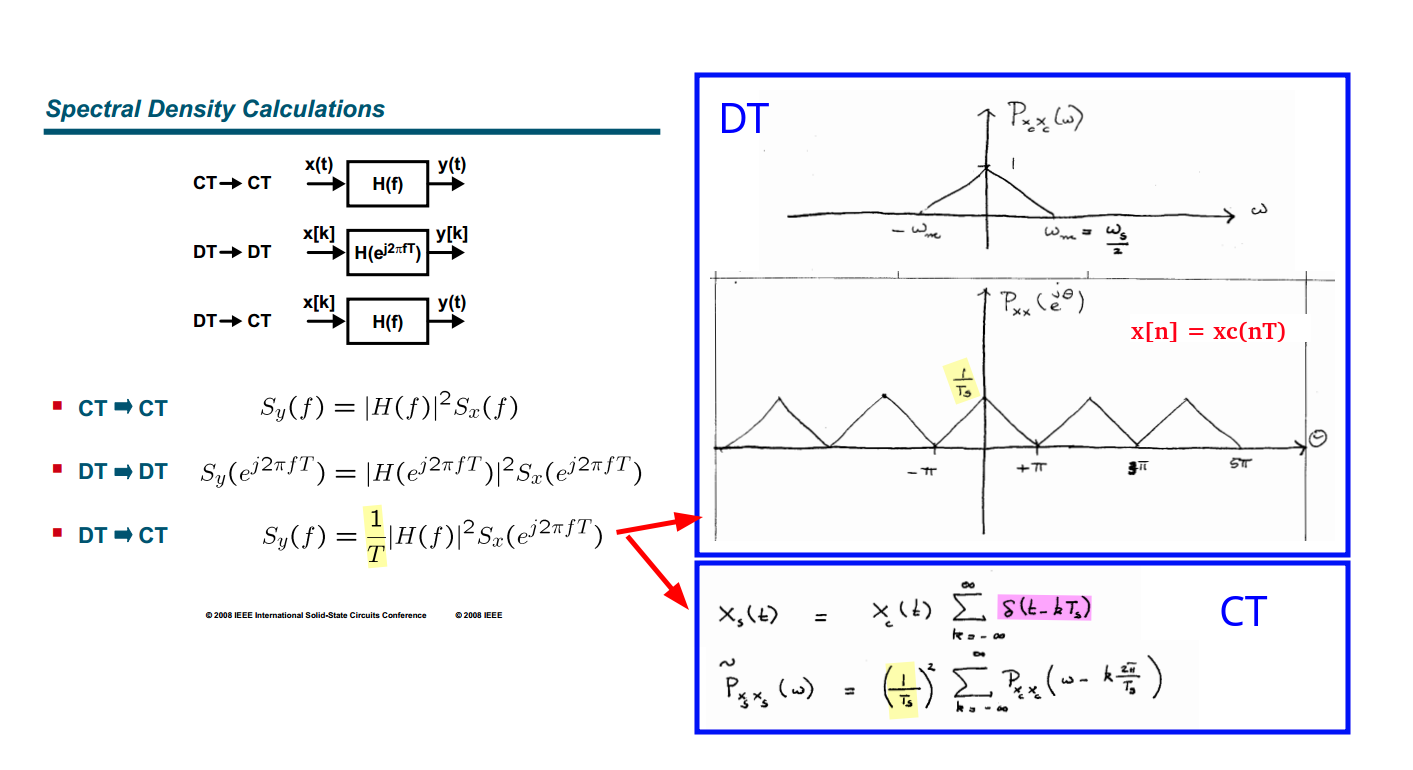 Spectral Density Calculations
CT → CT x(t) H(f) y(t)
DT → DT x[k] H(e^{j2πfT}) y[k]
DT → CT x[k] H(f) y(t)
CT ➡ CT S_y(f) = |H(f)|^2 S_x(f)
DT ➡ DT S_y(e^{j2πfT}) = |H(e^{j2πfT})|^2 S_x(e^{j2πfT})
DT ➡ CT S_y(f) = \frac{1}{T}|H(f)|^2 S_x(e^{j2πfT})
© 2008 IEEE International Solid-State Circuits Conference © 2008 IEEE
DT
P_{x_c x_c}(ω)
1
ω
-ω_m
ω_m = \frac{ω_s}{2}
P_{xx}(e^{jθ})
x[n] = xc(nT)
\frac{1}{T_s}
Θ
-π +π 3π 5π
CT
x_s(t) = x_c(t) \sum_{k=-∞}^{∞} δ(t-kT_s)
\tilde{P}_{x_s x_s}(ω) = (\frac{1}{T_s})^2 \sum_{k=-∞}^{∞} P_{x_c x_c}(ω - k\frac{2π}{T_s})